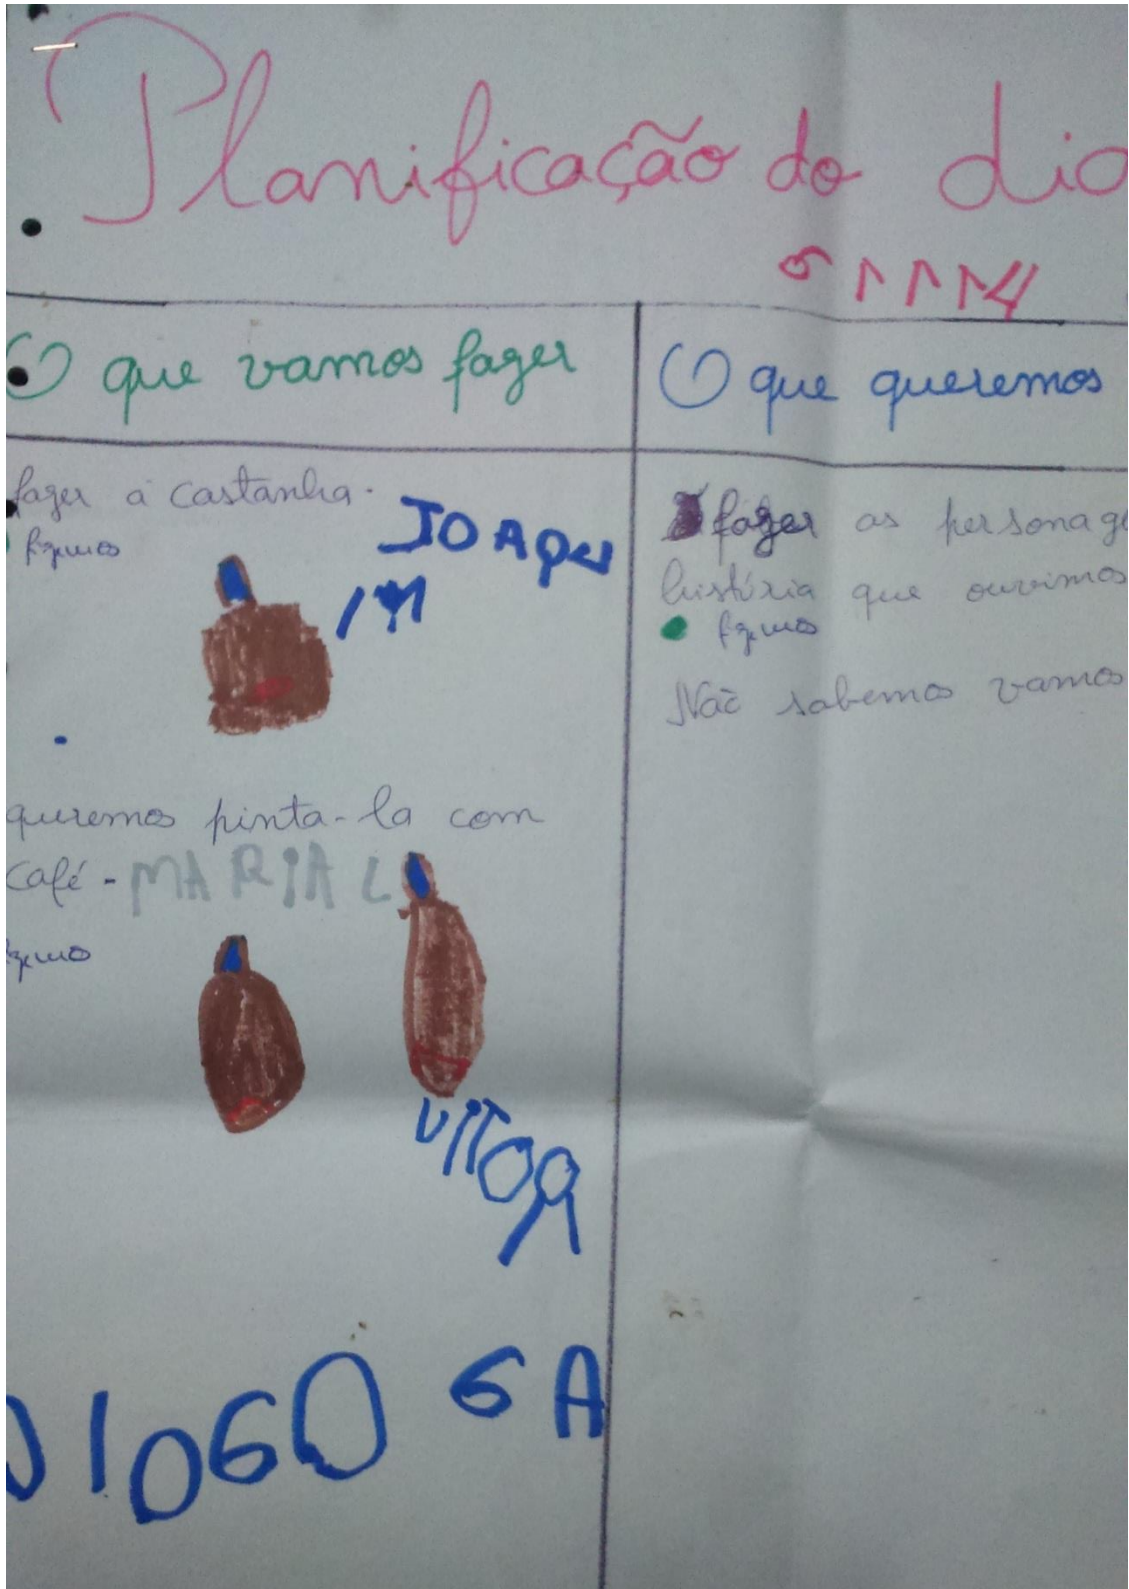 Planificação do dia
O que vamos fazer
O que queremos
fazer a castanha.
fizemos
JOAQU
IM
queremos pinta-la com
café - MARIA L
VITOR
DIOGO G A
fazer as personage
história que ouvimos
fizemos
Não sabemos vamos